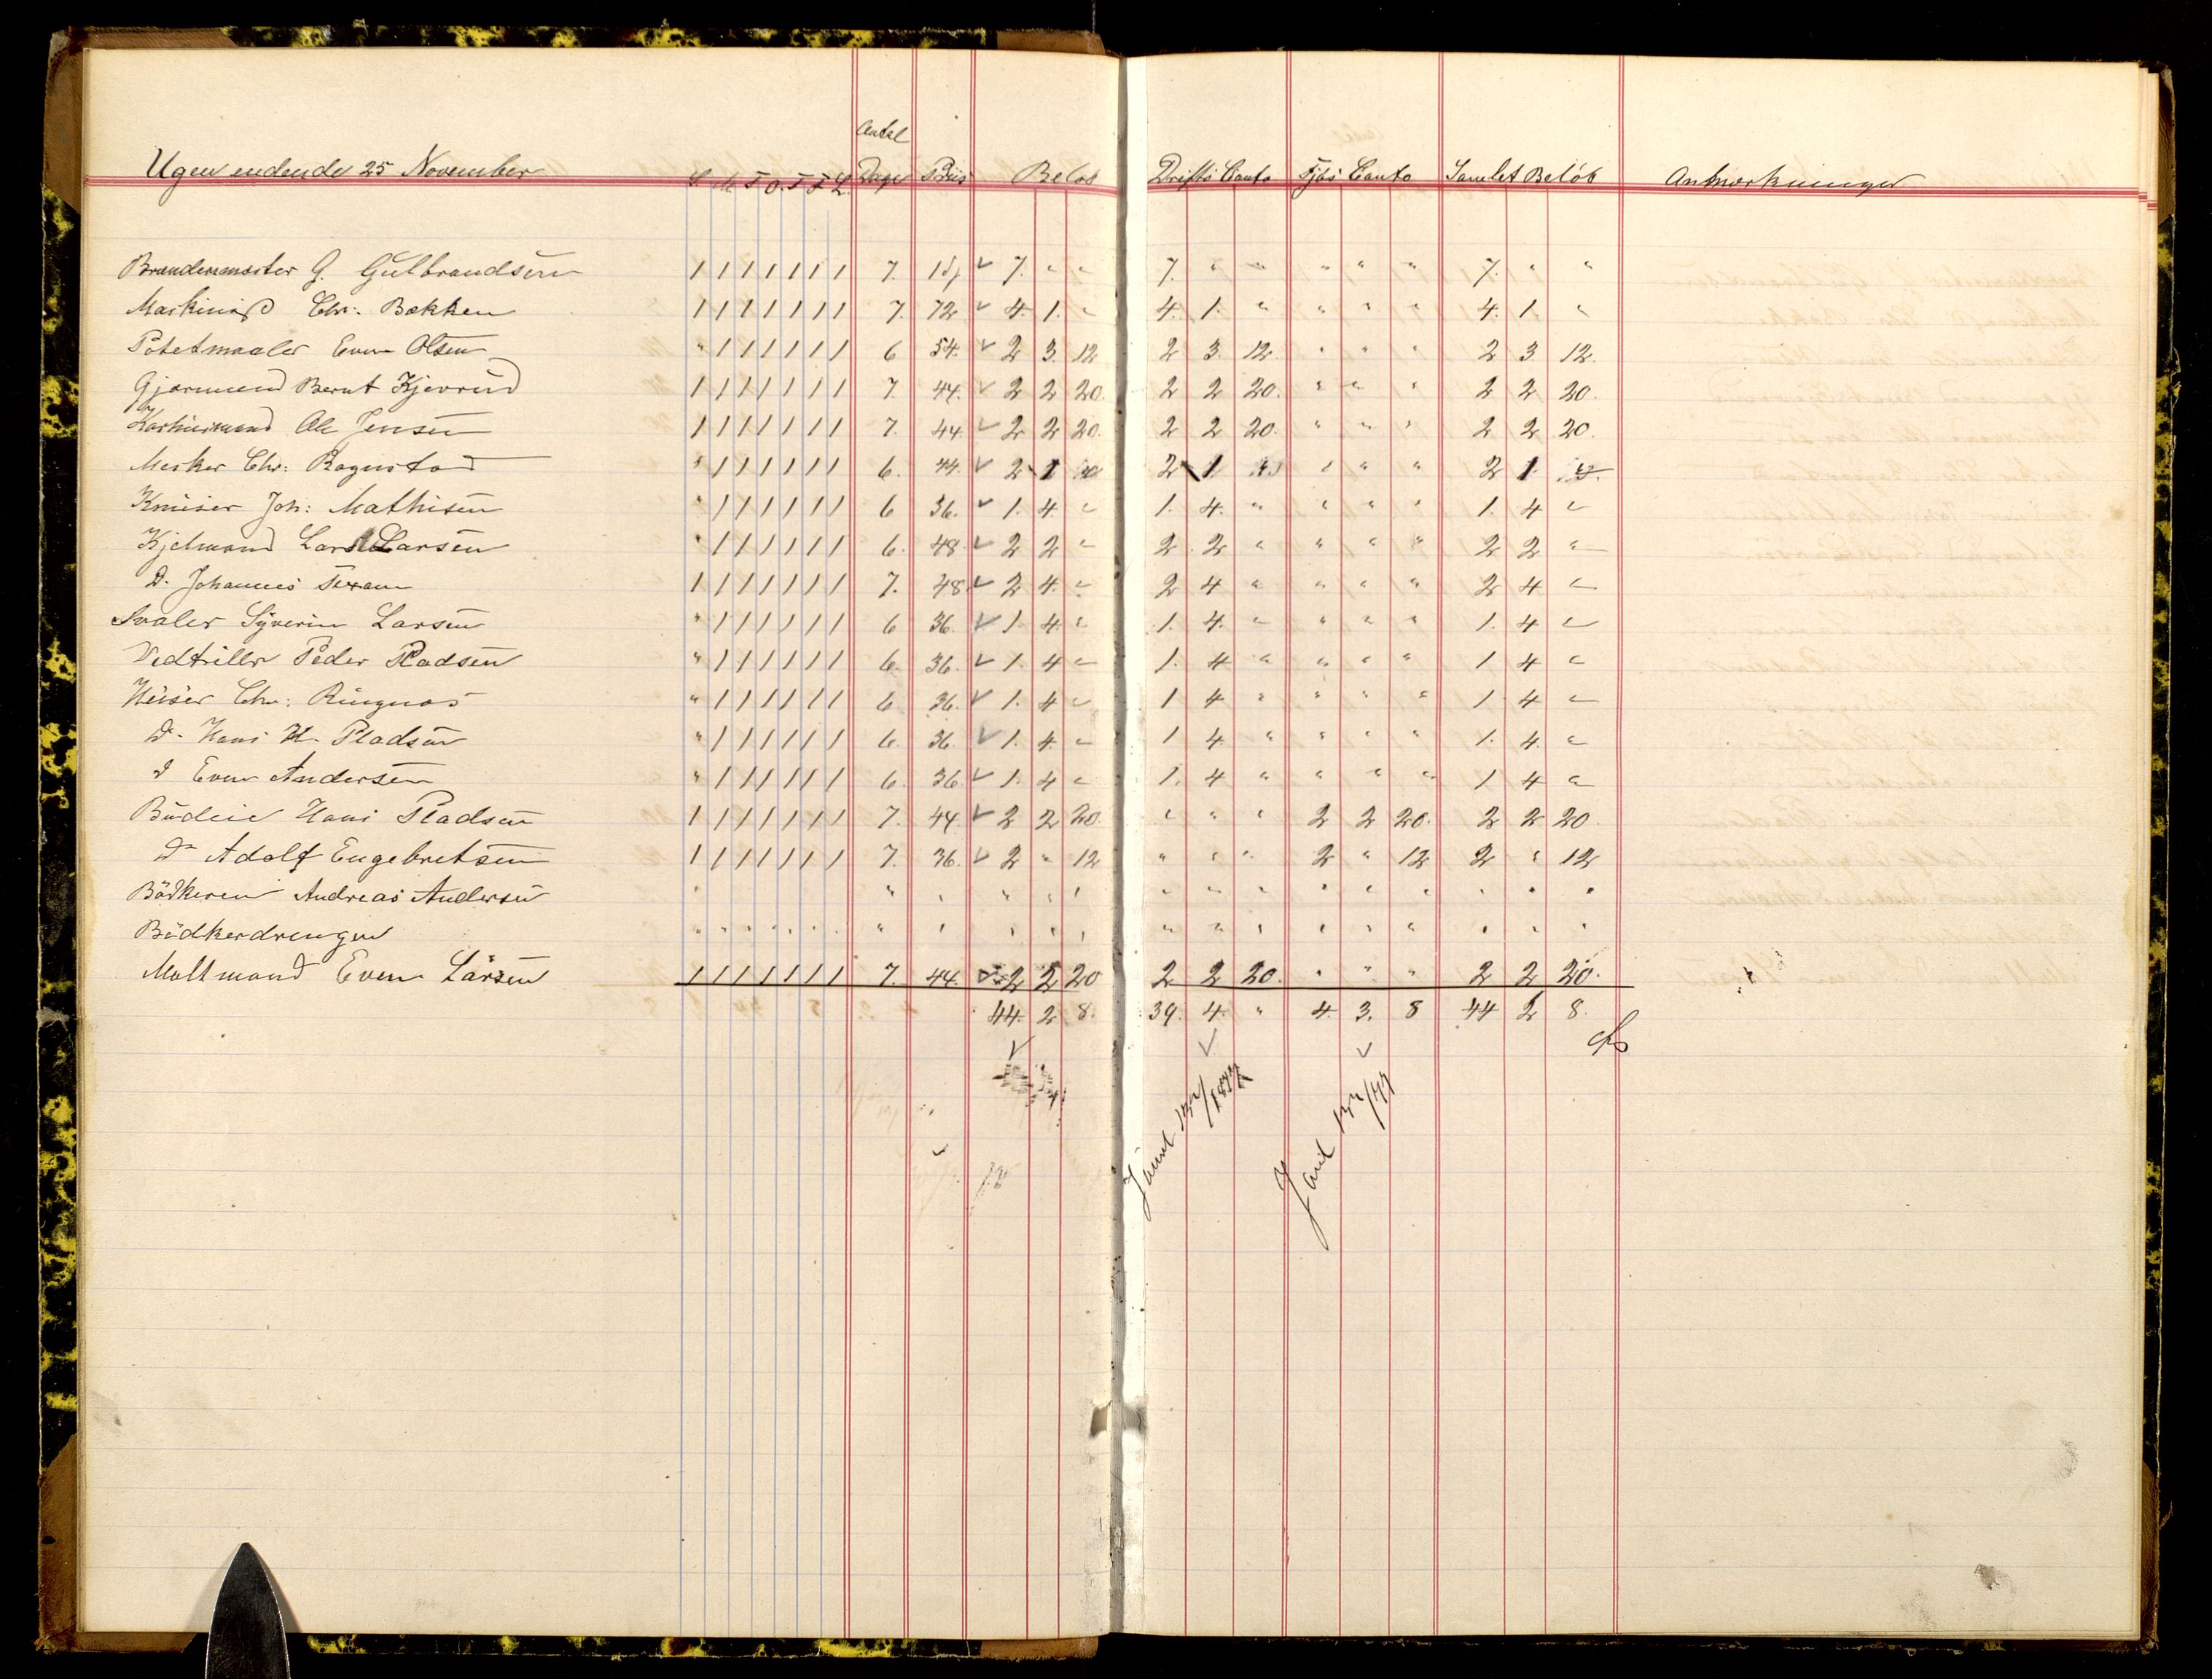 Antal
Ugen endende 25 November S. M. T. O. T. F. L. Dage Priis Beløb Drifts Conto Fjøs Conto Samlet Beløb Anmærkninger
Brændemester G. Gulbrandsen 1 1 1 1 1 1 1 7. ✓ 7. " " 7. " " " " " 7. " "
Maskinist Chr: Bækken 1 1 1 1 1 1 1 7. 72 ✓ 4. 1. " 4. 1. " " " " 4. 1. "
Potetmaaler Even Olsen " 1 1 1 1 1 1 6 54. ✓ 2 3. 12 2 3. 12. " " " 2 3 12.
Gjærmand Bernt Kjevrud 1 1 1 1 1 1 1 7. 44. ✓ 2 2 20. 2 2 20. " " " 2 2 20.
Ole Jensen 1 1 1 1 1 1 1 7. 44 ✓ 2 2 20. 2 2 20. " " " 2 2 20.
Mesker Chr: Rognstad " 1 1 1 1 1 1 6. 44. ✓ 2 1 2 1 " " " 2 1
Knuser Joh: Mathisen " 1 1 1 1 1 1 6 36. ✓ 1. 4. " 1. 4. " " " " 1. 4 "
Kjelmand Lars Larsen " 1 1 1 1 1 1 6. 48 ✓ 2 2 " 2 2 " " " " 2 2 "
D. Johannes 1 1 1 1 1 1 1 7. 48 ✓ 2 4. " 2 4 " " " " 2 4 "
Svaler Syverin Larsen " 1 1 1 1 1 1 6 36. ✓ 1. 4. " 1. 4. " " " " 1. 4 "
Vedtriller Peder Pladsen " 1 1 1 1 1 1 6. 36. ✓ 1. 4 " 1. 4 " " " " 1 4 "
Chr: Ringnæs " 1 1 1 1 1 1 6. 36. ✓ 1. 4 " 1 4 " " " " 1. 4 "
D. Hans H. Pladsen " 1 1 1 1 1 1 6. 36 ✓ 1. 4. " 1 4 " " " " 1. 4. "
D Even Andersen " 1 1 1 1 1 1 6. 36 ✓ 1. 4 " 1. 4 " " " " 1 4 "
Budeie Hans Pladsen 1 1 1 1 1 1 1 7. 44. ✓ 2 2 20. " " " 2 2 20. 2 2 20.
D. Adolf Engebretsen 1 1 1 1 1 1 1 7. 36. ✓ 2 " 12 " " " 2 " 12 2 " 12
Bødkeren Andreas Andersen " " " " " " " " " " " " " " "
Bødkerdrengen " " " " " " " " " " " " " " " " " " " " "
Maltmand Even Larsen 1 1 1 1 1 1 1 7. 44. ✓ 2 2 20 2 2 20. " " " 2 2 20.
44. 2 8. 39. 4. " 4. 3. 8 44 2 8.
✓ ✓ ✓
✓